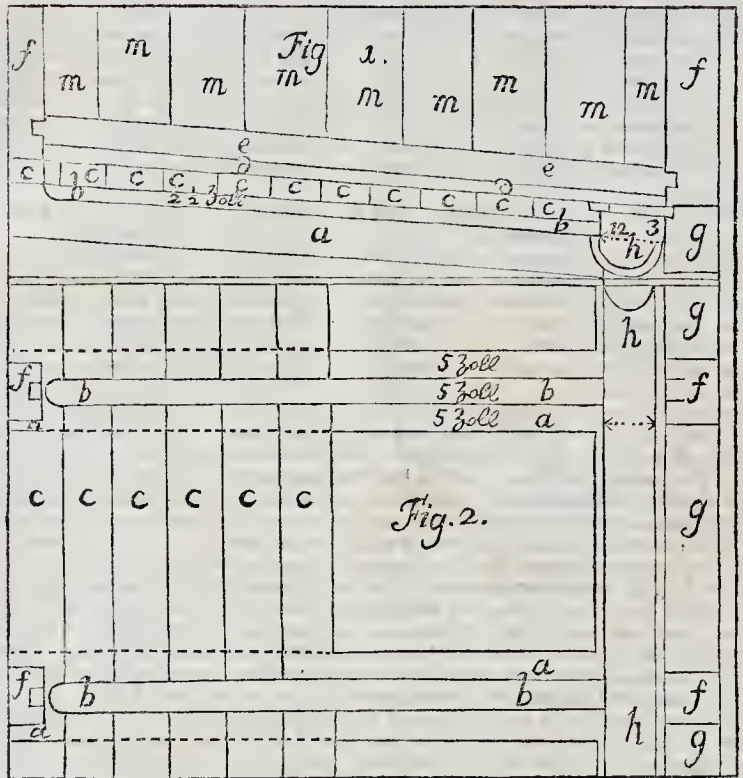 Fig 1.
f m m m m m m m m m f
e e
c c c c c c c c c c c
b 2½ Zoll b
a 12 3 g
h
g
h
5 Zoll
f b 5 Zoll b f
a 5 Zoll a
c c c c c c Fig. 2. g
a
f b b f
a h g